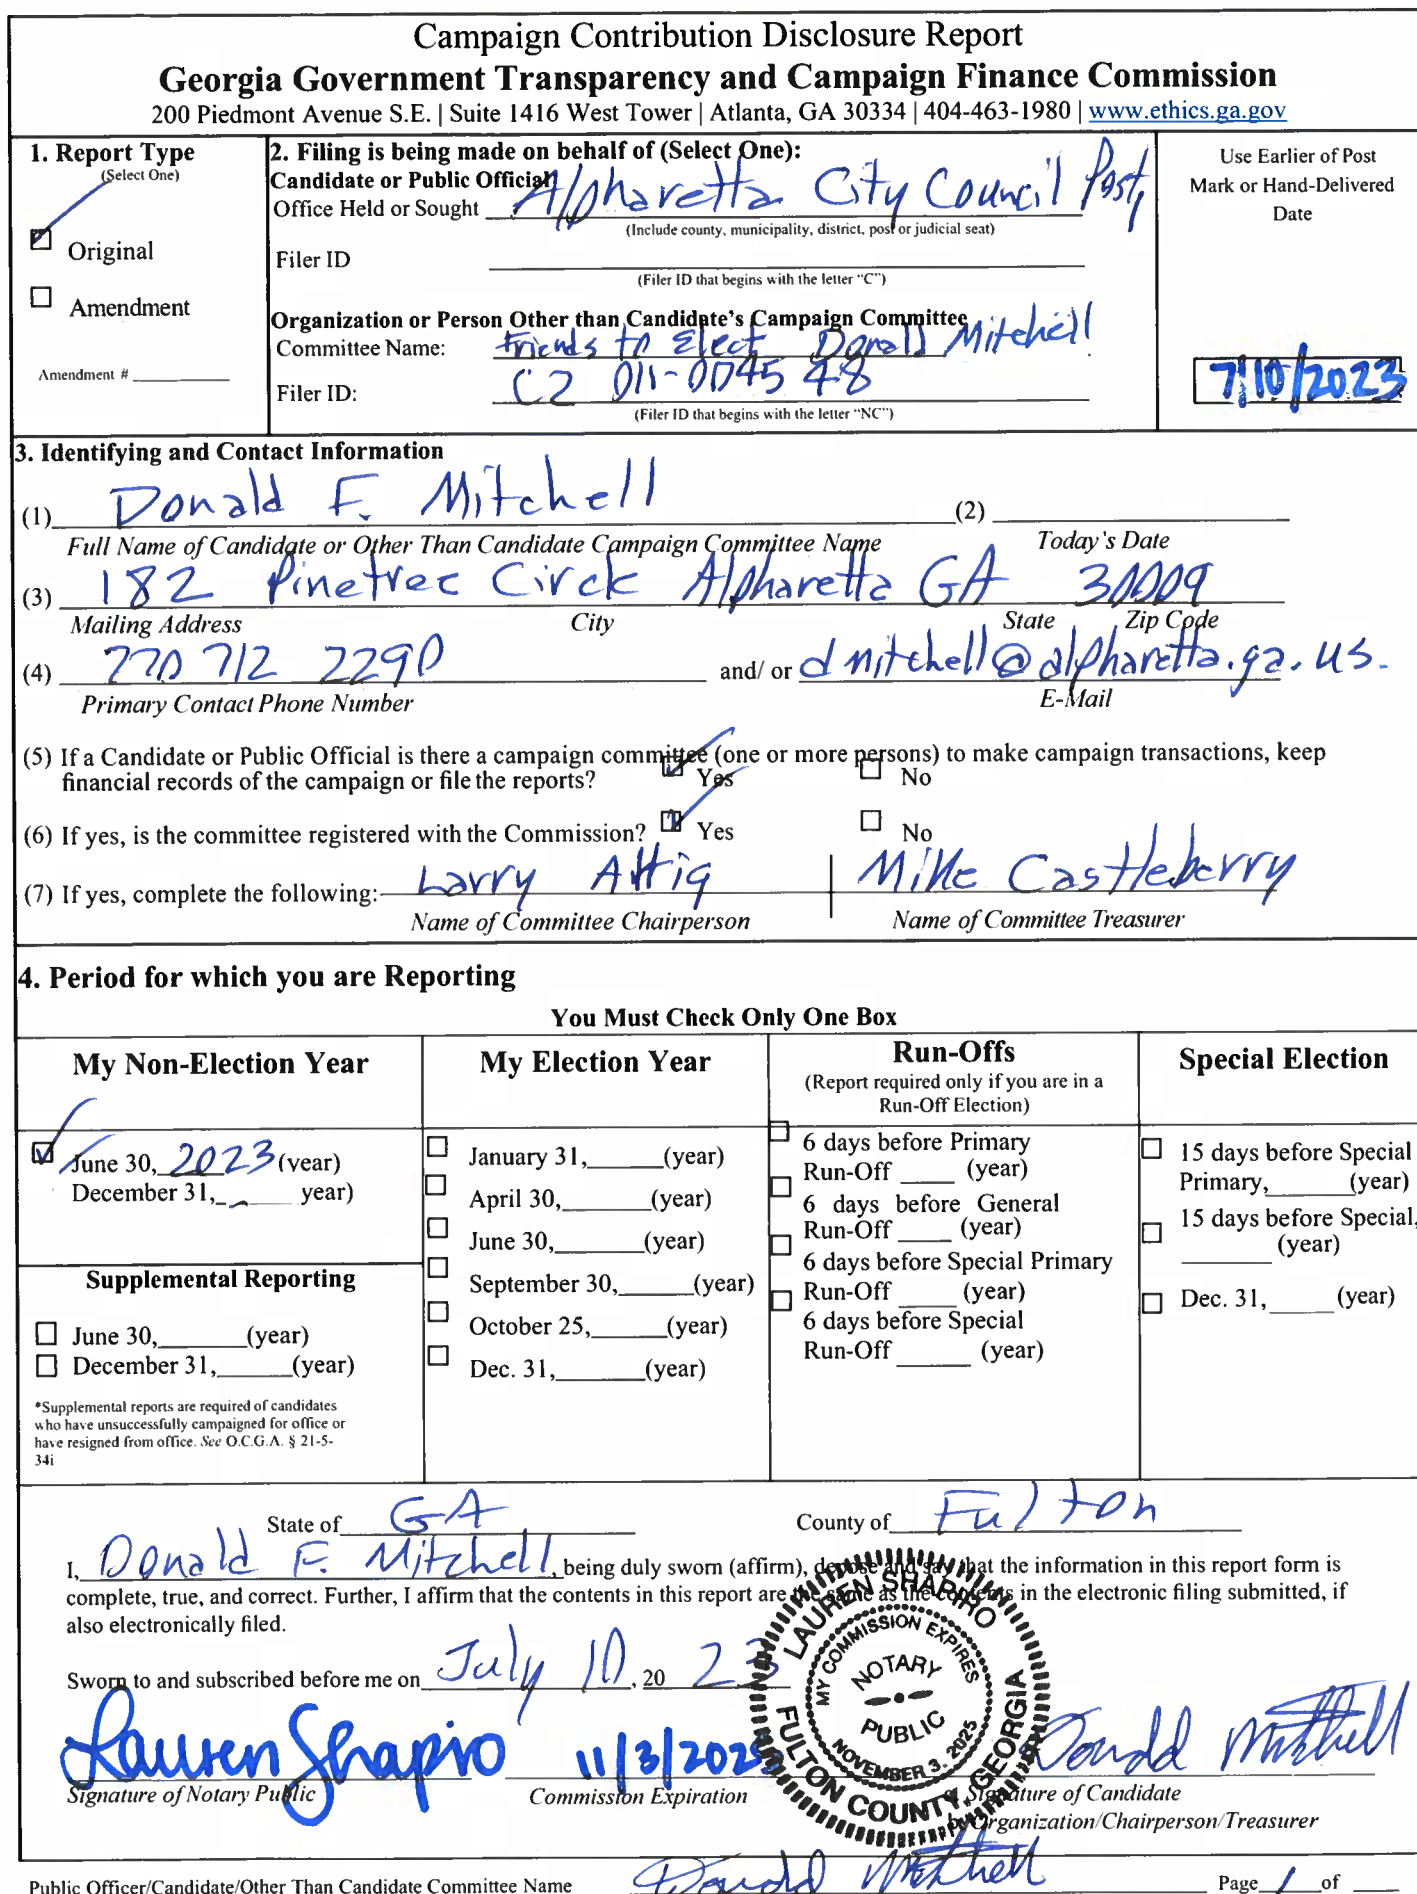 Campaign Contribution Disclosure Report
Georgia Government Transparency and Campaign Finance Commission
200 Piedmont Avenue S.E. | Suite 1416 West Tower | Atlanta, GA 30334 | 404-463-1980 | www.ethics.ga.gov
1. Report Type
(Select One)
Original
Amendment
Amendment # ________
2. Filing is being made on behalf of (Select One):
Candidate or Public Official
Office Held or Sought Alpharetta City Council Post 1
(Include county, municipality, district, post or judicial seat)
Filer ID
(Filer ID that begins with the letter "C")
Organization or Person Other than Candidate's Campaign Committee
Committee Name: Friends to Elect Donald Mitchell
Filer ID: C2 011-004548
(Filer ID that begins with the letter "NC")
Use Earlier of Post
Mark or Hand-Delivered
Date
7/10/2023
3. Identifying and Contact Information
(1) Donald F. Mitchell (2) ________
Full Name of Candidate or Other Than Candidate Campaign Committee Name Today's Date
(3) 182 Pinetree Circle Alpharetta GA 30009
Mailing Address City State Zip Code
(4) 770 712 2290 and/ or dmitchell@alpharetta.ga.us.
Primary Contact Phone Number E-Mail
(5) If a Candidate or Public Official is there a campaign committee (one or more persons) to make campaign transactions, keep
financial records of the campaign or file the reports? Yes No
(6) If yes, is the committee registered with the Commission? Yes No
(7) If yes, complete the following: Larry Attig Mike Castleberry
Name of Committee Chairperson Name of Committee Treasurer
4. Period for which you are Reporting
You Must Check Only One Box
My Non-Election Year
June 30, 2023 (year)
December 31,____ year)
Supplemental Reporting
June 30,______(year)
December 31,______(year)
*Supplemental reports are required of candidates
who have unsuccessfully campaigned for office or
have resigned from office. See O.C.G.A. § 21-5-
34i
My Election Year
January 31,______(year)
April 30,______(year)
June 30,______(year)
September 30,______(year)
October 25,______(year)
Dec. 31,______(year)
Run-Offs
(Report required only if you are in a
Run-Off Election)
6 days before Primary
Run-Off ____ (year)
6 days before General
Run-Off ____ (year)
6 days before Special Primary
Run-Off ____ (year)
6 days before Special
Run-Off ____ (year)
Special Election
15 days before Special
Primary,______(year)
15 days before Special,
______ (year)
Dec. 31,_____ (year)
State of GA County of Fulton
I, Donald F. Mitchell, being duly sworn (affirm), depose and say that the information in this report form is
complete, true, and correct. Further, I affirm that the contents in this report are the same as the contents in the electronic filing submitted, if
also electronically filed.
Sworn to and subscribed before me on July 10, 20 23
LAUREN SHAPIRO
MY COMMISSION EXPIRES
NOTARY
PUBLIC
NOVEMBER 3, 2025
FULTON COUNTY, GEORGIA
Lauren Shapiro 11/3/2025 Donald Mitchell
Signature of Notary Public Commission Expiration Signature of Candidate
Organization/Chairperson/Treasurer
Public Officer/Candidate/Other Than Candidate Committee Name Donald Mitchell Page 1 of ____